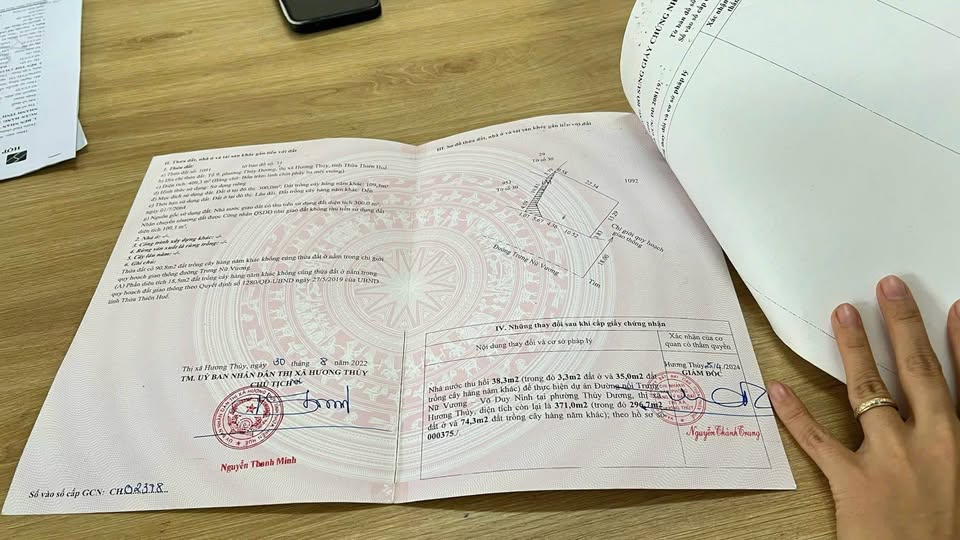 II. Thửa đất, nhà ở và tài sản khác gắn liền với đất
1. Thửa đất:
a) Thửa đất số: 1091 tờ bản đồ số: 31
b) Địa chỉ thửa đất: Tổ 9, phường Thủy Dương, thị xã Hương Thủy, tỉnh Thừa Thiên Huế
c) Diện tích: 409,3 m² (Bằng chữ: Bốn trăm linh chín phẩy ba mét vuông)
d) Hình thức sử dụng: Sử dụng riêng
đ) Mục đích sử dụng đất: Đất ở tại đô thị: 300,0m²; Đất trồng cây hàng năm khác: 109,3m²
e) Thời hạn sử dụng đất: Đất ở tại đô thị: Lâu dài, Đất trồng cây hàng năm khác: Đến
ngày 01/7/2064
g) Nguồn gốc sử dụng đất: Nhà nước giao đất có thu tiền sử dụng đất diện tích 300,0 m²,
Nhận chuyển nhượng đất được Công nhận QSDĐ như giao đất không thu tiền sử dụng đất
diện tích
2. Nhà ở: -/-
3. Công trình xây dựng khác: -/-
4. Rừng sản xuất là rừng trồng: -/-
5. Cây lâu năm: -/-
6. Ghi chú:
Thửa đất có 90,8m2 đất trồng cây hàng năm khác không cùng thửa đất ở nằm trong chỉ giới
quy hoạch giao thông đường Trưng Nữ Vương.
(A) Phần diện tích 18,5m2 đất trồng cây hàng năm khác không cùng thửa đất ở nằm trong
quy hoạch đất giao thông theo Quyết định số 1280/QĐ-UBND ngày 27/5/2019 của UBND
tỉnh Thừa Thiên Huế.
Thị xã Hương Thủy, ngày 30 tháng 8 năm 2022
TM. ỦY BAN NHÂN DÂN THỊ XÃ HƯƠNG THỦY
CHỦ TỊCH
Nguyễn Thanh Minh
Số vào sổ cấp GCN: CH.02378
III. Sơ đồ thửa đất, nhà ở và tài sản khác gắn liền với đất
29
Tờ số 30
953
Tờ số 30
1092
22.34
11.29
5.67
4.56
10.52
18.00
Chỉ giới quy hoạch
giao thông
Đường Trưng Nữ Vương
Tim
IV. Những thay đổi sau khi cấp giấy chứng nhận
Nội dung thay đổi và cơ sở pháp lý
Xác nhận của cơ
quan có thẩm quyền
Nhà nước thu hồi 38,3m2 (trong đó 3,3m2 đất ở và 35,0m2 đất
trồng cây hàng năm khác) để thực hiện dự án Đường nối Trưng
Nữ Vương - Võ Duy Ninh tại phường Thủy Dương, thị xã
Hương Thủy, diện tích còn lại là 371,0m2 (trong đó 296,7m2
đất ở và 74,3m2 đất trồng cây hàng năm khác); theo hồ sơ số
000375./.
GIÁM ĐỐC
Nguyễn Thành Trung
Tờ bản đồ số
Số vào sổ cấp
Xác nhận
HỢP